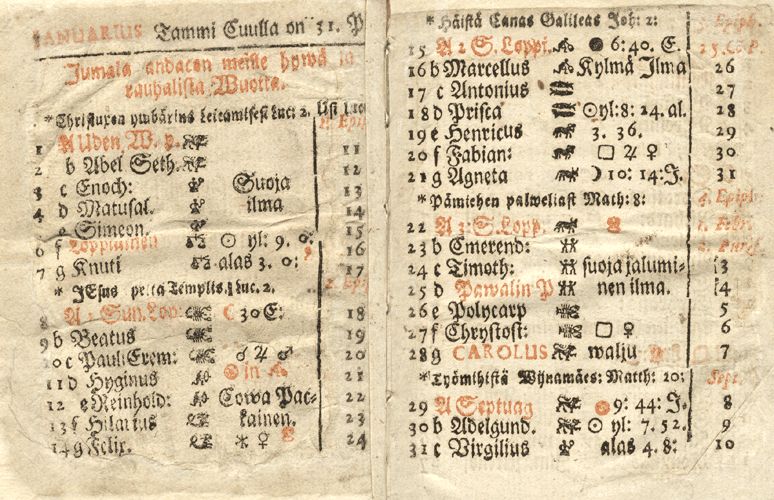 JANUARIUS Tammi Cuulla on 31. P
Jumala andacon meille hywä ja
rauhalista Wuotta.
* Christuxen ymbärins leickamisest Luc: 2.
1 A Uden W. p. 11
2 b Abel Seth. 12
3 c Enoch: Suoja 13
4 d Matusal. ilma 14
5 e Simeon. 15
6 f Loppiainen ☉ yl: 9. 0: 16
7 g Knuti alas 3. 0: 17
* JEsus Templis. Luc. 2.
8 A 1 Sun. Lop: ☾ 30 E: 18
9 b Beatus 19
10 c Pauli Erem: ☌ ♃ ♂ 20
11 d Hyginus ☉ in 21
12 e Reinhold: Cowa Pac- 22
13 f Hilarius kainen. 23
14 g Felix. * ♀ 24
* Häistä Canas Galileas Joh: 2: 3. Epiph.
15 A 2 S. Loppi. 6: 40. E. 25
16 b Marcellus Kylmä Ilma 26
17 c Antonius 27
18 d Prisca ☉ yl: 8: 24. al. 28
19 e Henricus 3. 36. 29
20 f Fabian: □ ♃ ♀ 30
21 g Agneta ☽ 10: 14: J. 31
* Pämiehen palweliast Math: 8: 4. Epiph.
22 A 3: S. Lopp. 1. Febr.
23 b Emerend: 2.
24 c Timoth: suoja jalumi- 3
25 d Pawalin P nen ilma. 4
26 e Polycarp 5
27 f Chrysost: □ ♀ 6
28 g CAROLUS walju 7
* Työmihistä Wijnamäes: Matth: 20: Sept.
29 A Septuag 9: 44: J. 8
30 b Adelgund. ☉ yl: 7. 52. 9
31 c Virgilius alas 4. 8: 10